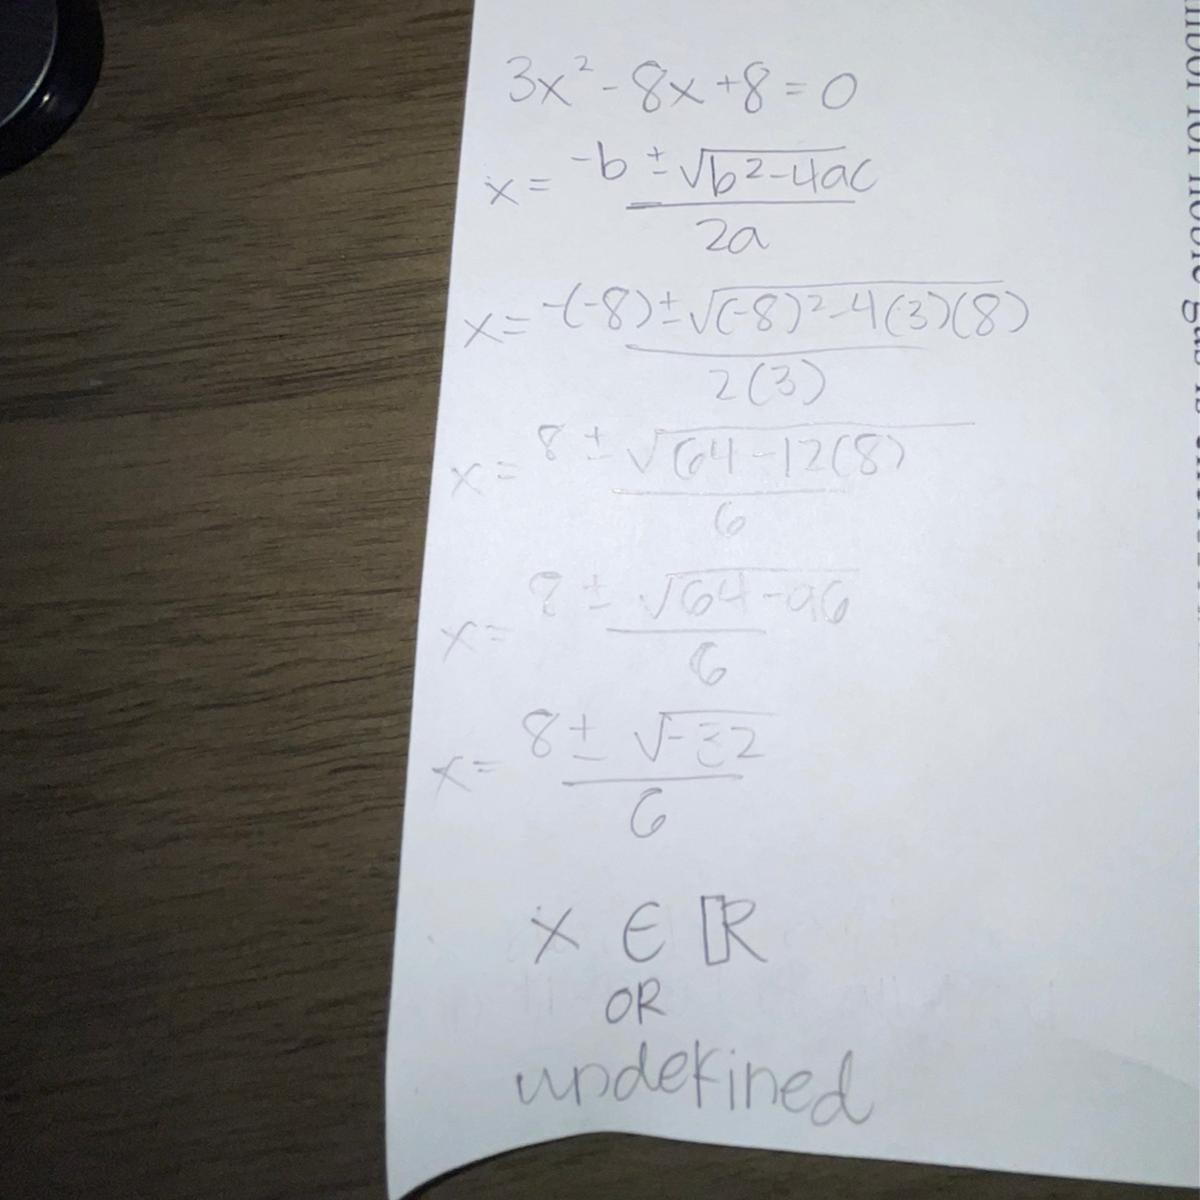 3x² - 8x + 8 = 0
x = -b ± √b² - 4ac / 2a
x = -(-8) ± √(-8)² - 4(3)(8) / 2(3)
x = 8 ± √64 - 12(8) / 6
x = 8 ± √64 - 96 / 6
x = 8 ± √-32 / 6
x ∈ ℝ
OR
undefined